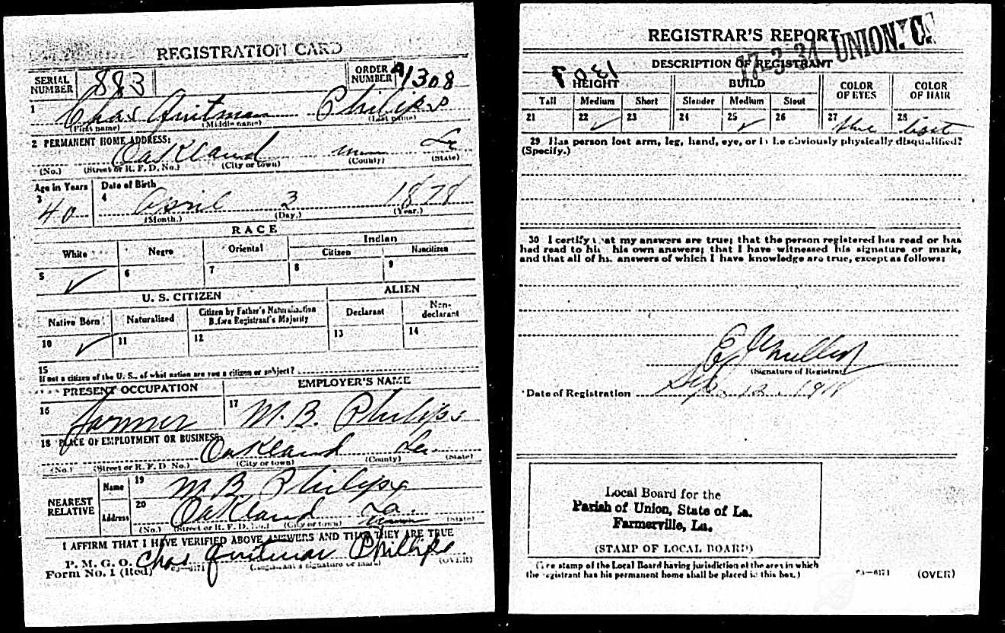 REGISTRATION CARD
SERIAL NUMBER 883 ORDER NUMBER A1308
1 Chas Quitman Philips
(First name) (Middle name) (Last name)
2 PERMANENT HOME ADDRESS:
Oakland La
(No.) (Street or R. F. D. No.) (City or town) (County) (State)
Age in Years Date of Birth
3 4
40 April 3 1878
(Month.) (Day.) (Year.)
RACE
White Negro Oriental Indian
Citizen Noncitizen
5 ✓ 6 7 8 9
U. S. CITIZEN ALIEN
Native Born Naturalized Citizen by Father's Naturalization Before Registrant's Majority Declarant Non-declarant
10 ✓ 11 12 13 14
15
If not a citizen of the U. S., of what nation are you a citizen or subject?
PRESENT OCCUPATION EMPLOYER'S NAME
16 farmer 17 M. B. Philips
18 PLACE OF EMPLOYMENT OR BUSINESS:
Oakland La
(No.) (Street or R. F. D. No.) (City or town) (County) (State)
NEAREST RELATIVE
Name 19 M B Philips
Address 20 Oakland La
(No.) (Street or R. F. D. No.) (City or town) (State)
I AFFIRM THAT I HAVE VERIFIED ABOVE ANSWERS AND THAT THEY ARE TRUE
P. M. G. O.
Form No. 1 (Red) Chas Quitman Phillips
(Registrant's signature or mark) (OVER)
REGISTRAR'S REPORT
17-3-34 UNION. C.
DESCRIPTION OF REGISTRANT
HEIGHT BUILD COLOR OF EYES COLOR OF HAIR
Tall Medium Short Slender Medium Stout
21 22 ✓ 23 24 25 ✓ 26 27 28
29 Has person lost arm, leg, hand, eye, or is he obviously physically disqualified?
(Specify.)
30 I certify that my answers are true; that the person registered has read or has
had read to him his own answers; that I have witnessed his signature or mark,
and that all of his answers of which I have knowledge are true, except as follows:
(Signature of Registrar)
Date of Registration Sep. 12. 1918
Local Board for the
Parish of Union, State of La.
Farmerville, La.
(STAMP OF LOCAL BOARD)
(The stamp of the Local Board having jurisdiction of the area in which
the registrant has his permanent home shall be placed in this box.)
03—6171 (OVER)